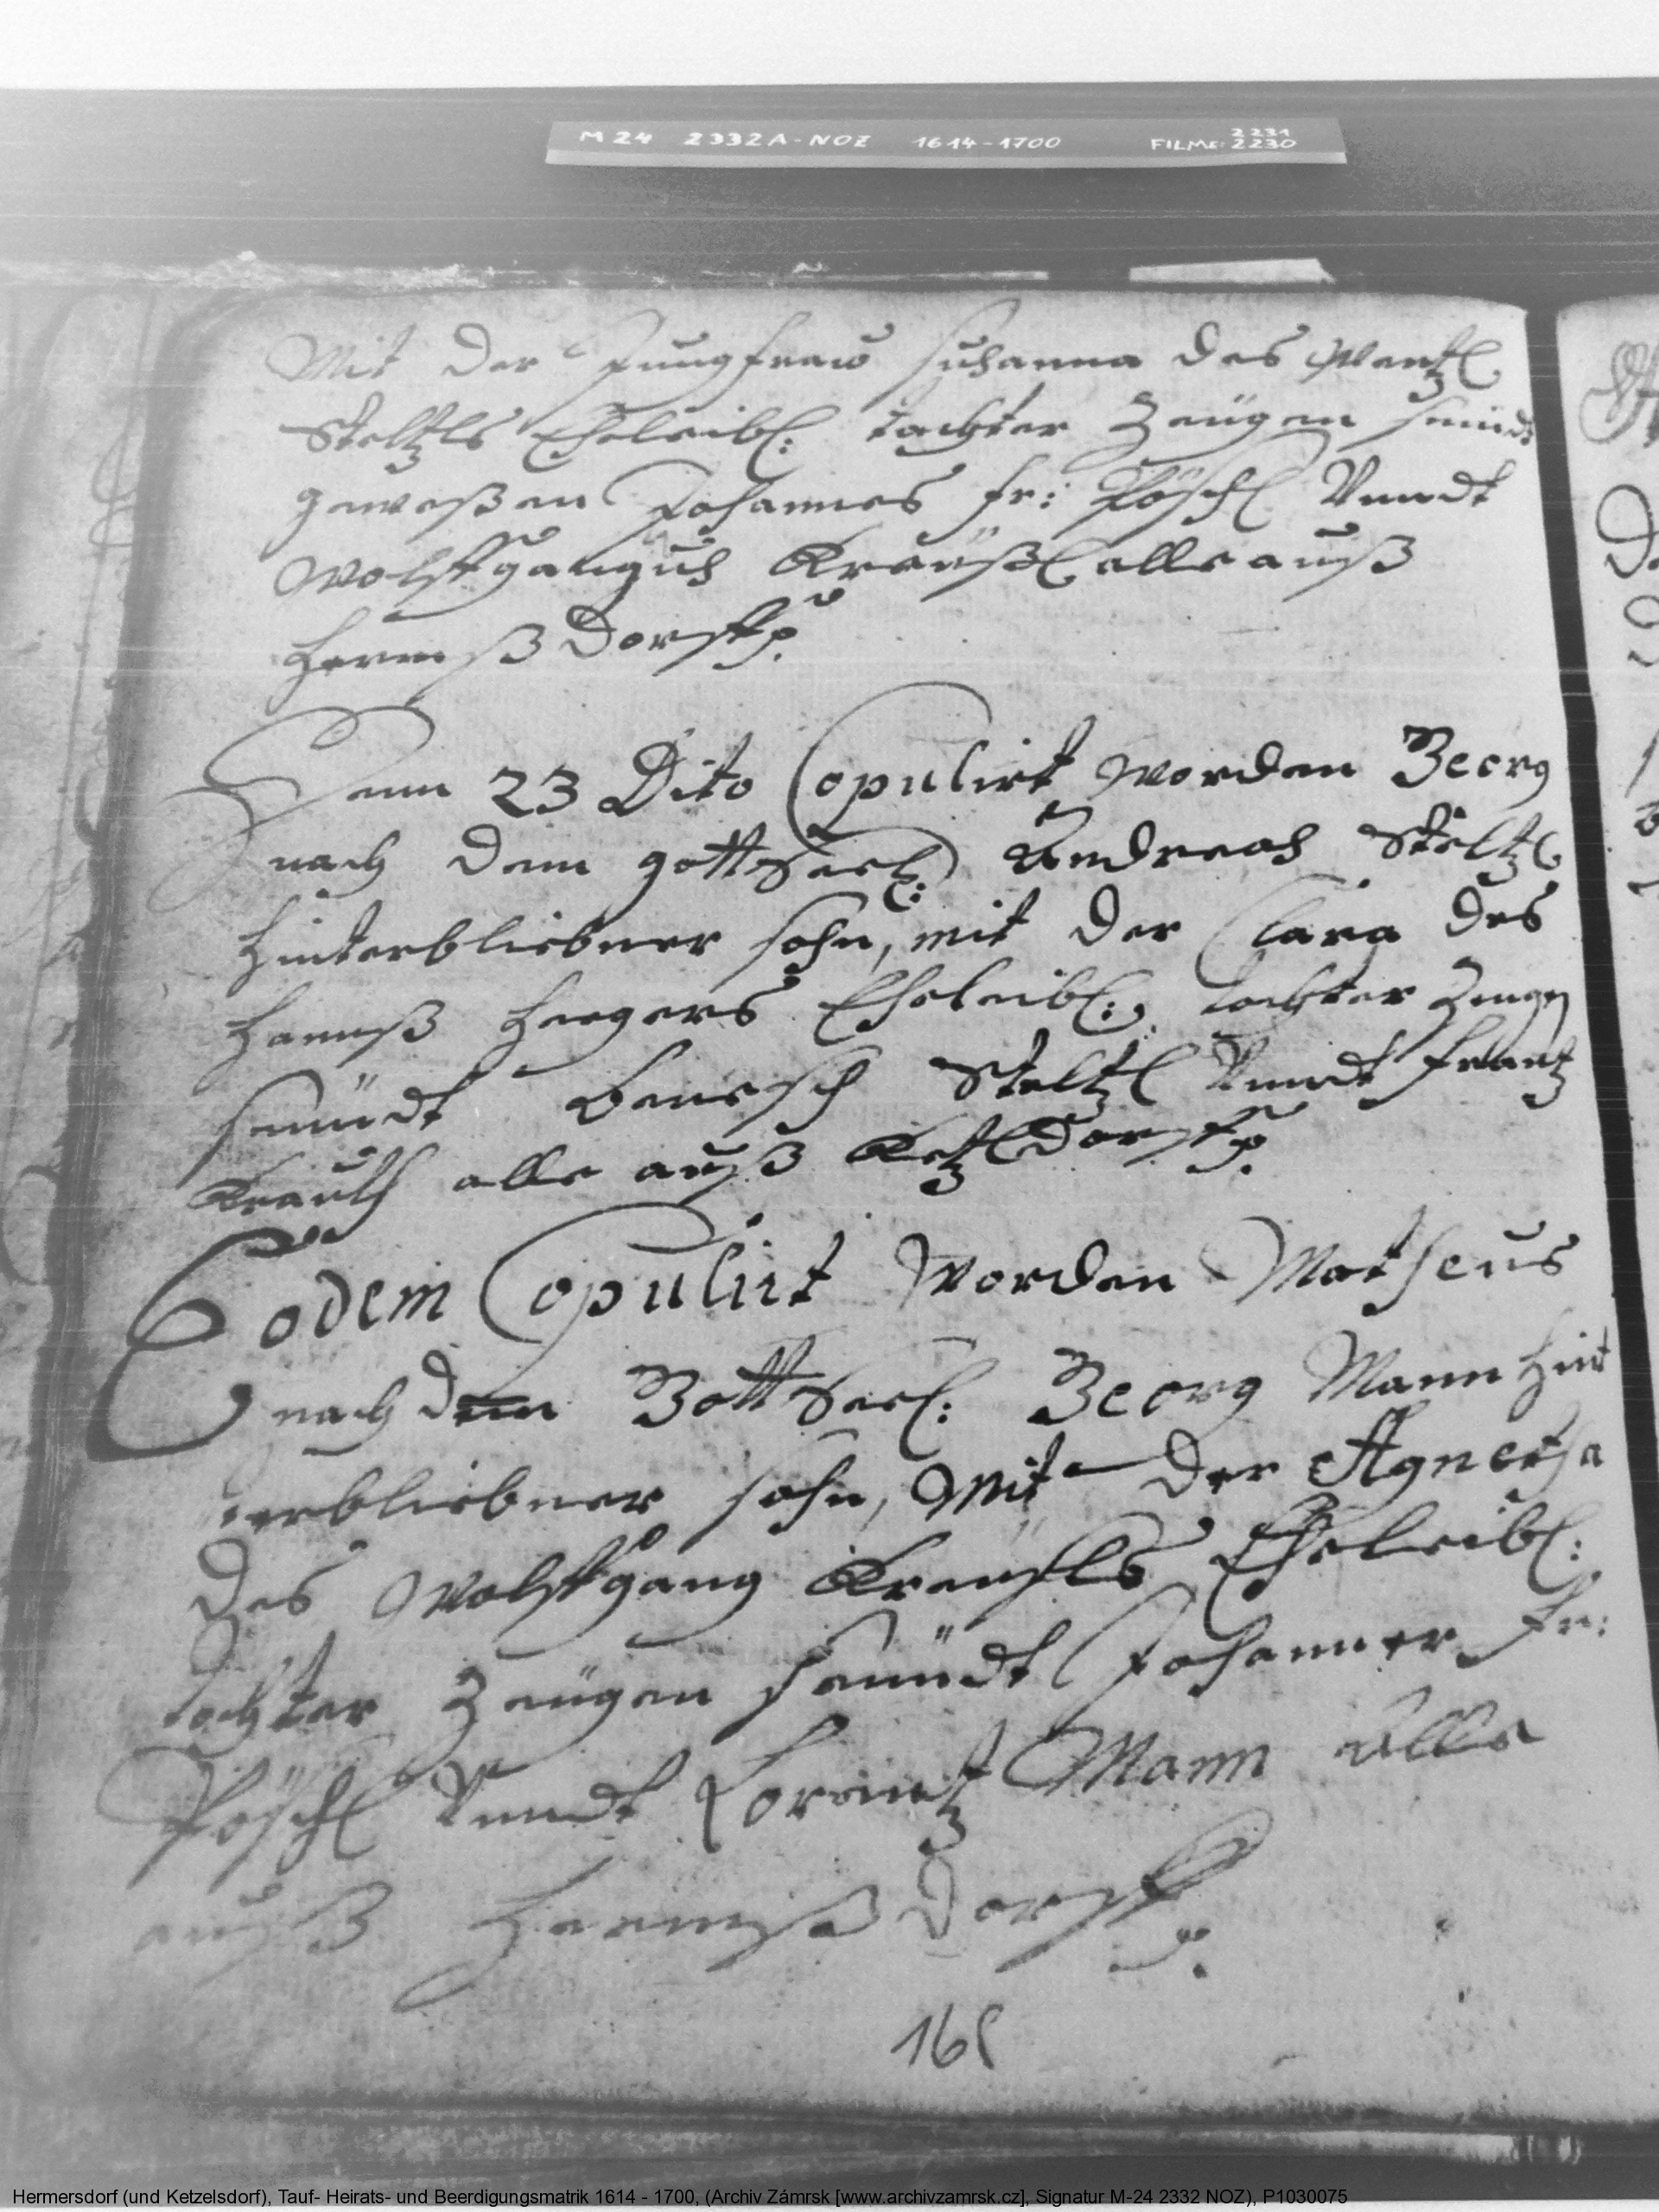 M 24 2332A-NOZ 1614-1700 FILME: 2231 2230
Mit der Jungfraw Susanna des Wentzl
Steltzls Eheleibl: tochter Zeügen seindt
geweßen Johannes fr: Pöschl Vnndt
Wolffgangus Kreüßl alle auß
Hermß Dorff
Denn 23 Dito Copulirt worden Georg
nach dem gottSeel: Andreas Steltzl
hinterbliebner sohn, mit der Clara des
Hannß Heegers Eheleibl: tochter Zeugen
seindt Steltzl Vnndt Frantz
Krauth alle auß KetzlDorff
Eodem Copulirt worden Matheus
nach dem GottSeel: Georg Mann hint
erbliebner sohn, Mit der Agnetha
des Wolffgang Kreusls Eheleibl:
tochter Zeügen seündt Johannes Fr:
Pöschl Vnndt Lorentz Mann alle
auß Hermß Dorff
165
Hermersdorf (und Ketzelsdorf), Tauf- Heirats- und Beerdigungsmatrik 1614 - 1700, (Archiv Zámrsk [www.archivzamrsk.cz], Signatur M-24 2332 NOZ), P1030075